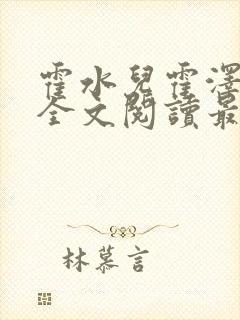 霍水兒霍澤
全文閱讀最
林慕言